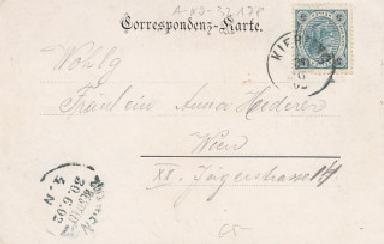 A-09-32178
Correspondenz-Karte.
Wohlg
Fräulein Anna Hederer
Wien
XX. Jägerstrasse 14
20.6.02